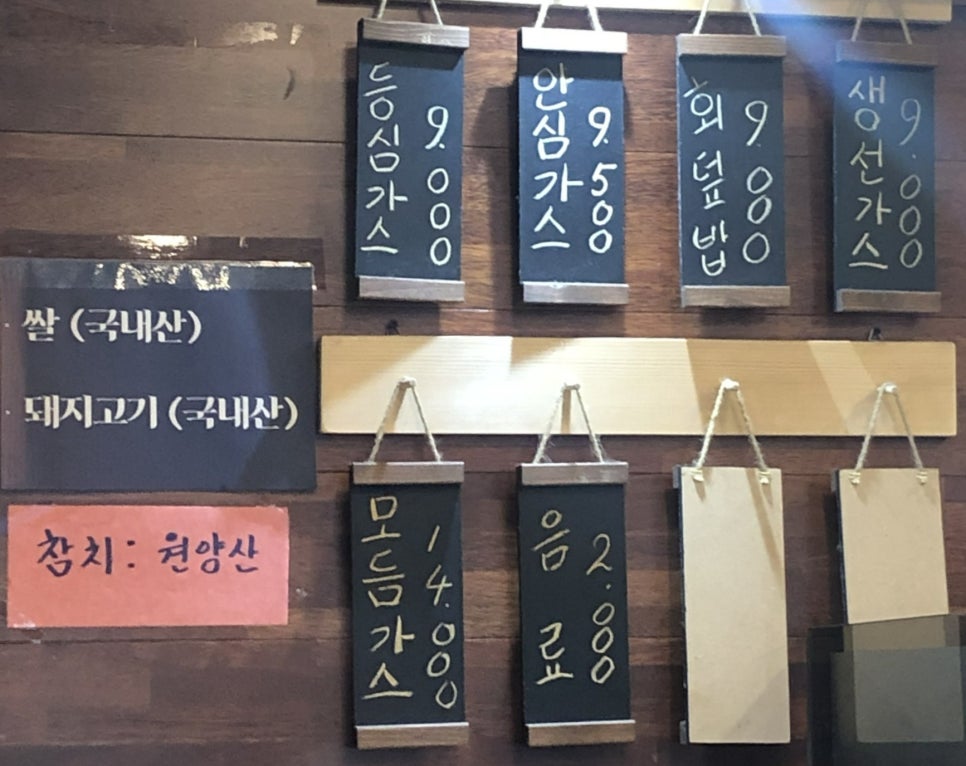 등심가스 9.000
안심가스 9.500
회덮밥 9.000
생선가스 9.000
쌀 (국내산)
돼지고기 (국내산)
참치: 원양산
모듬가스 14.000
음료 2.000